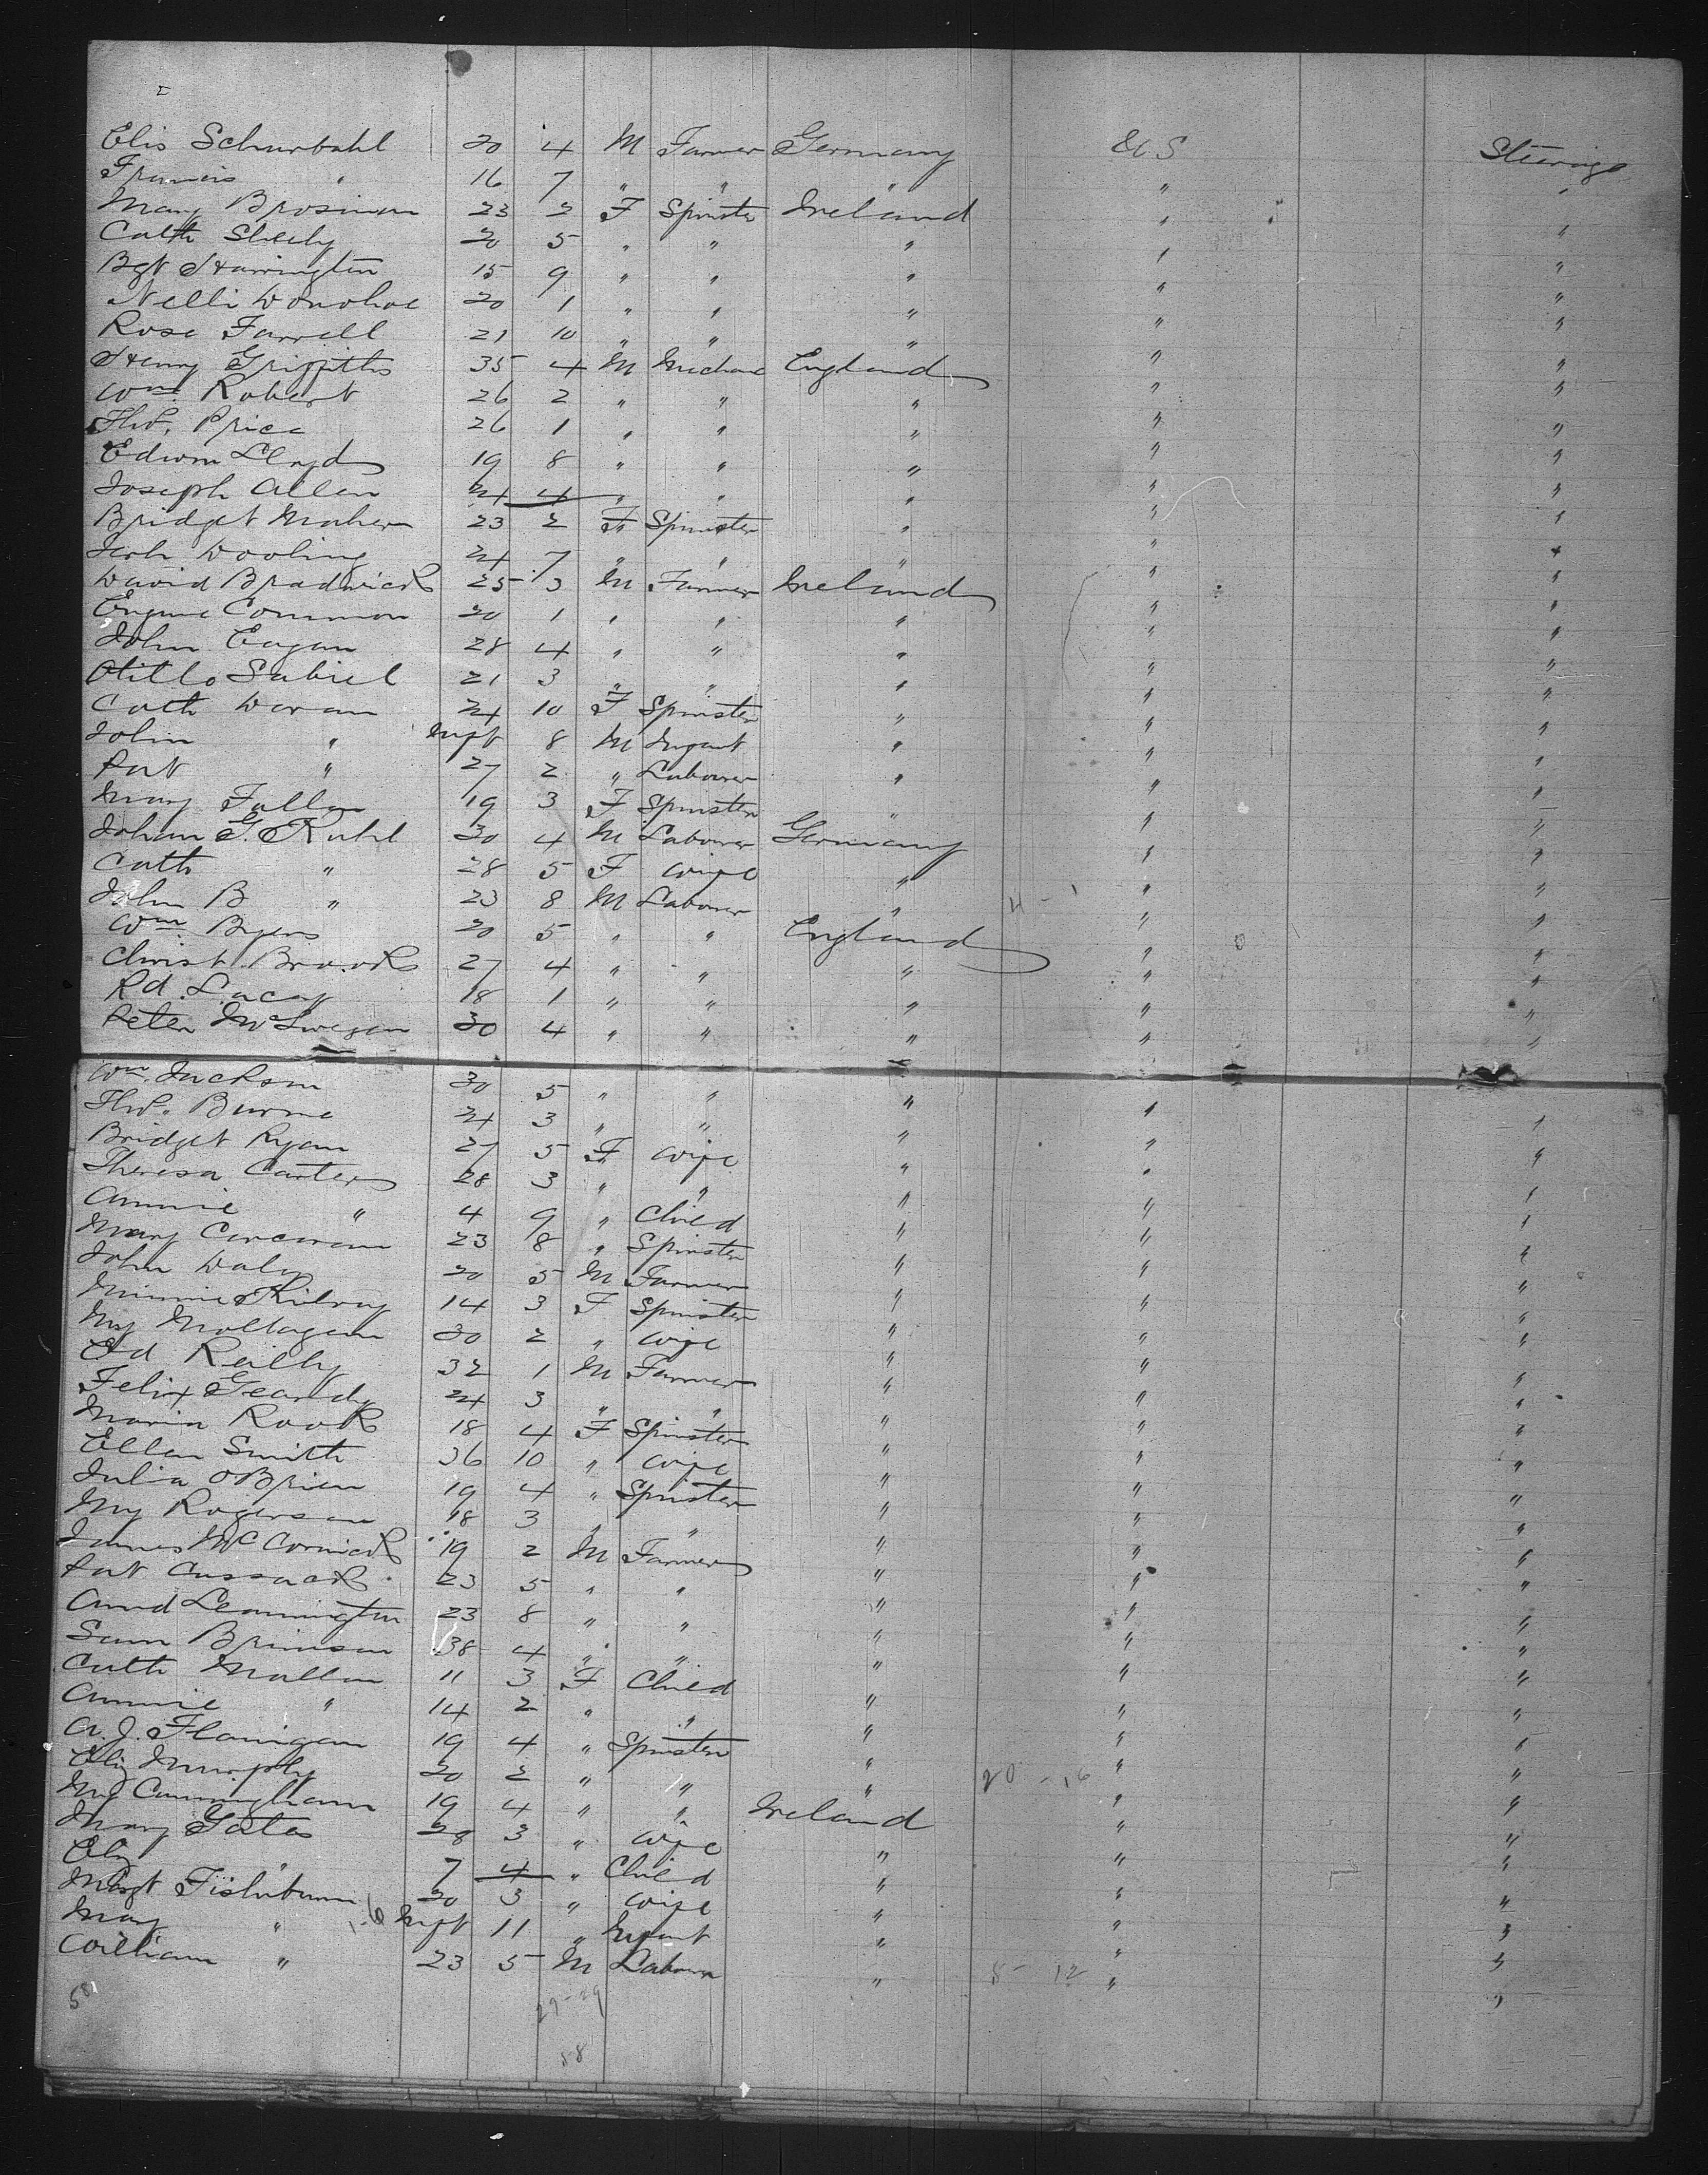 Elis Schurbahl 20 4 M Farmer Germany U S Steerage
Francis " 16 7 " " " " "
Mary Brosinan 23 2 F Spinster Ireland " "
Cath Sheehy 20 5 " " " " "
Bgt Harrington 15 9 " " " " "
Nelli Donohoe 20 1 " " " " "
Rose Farrell 21 10 " " " " "
Henry Griffiths 35 4 M Mechanic England " "
Wm. Robert 26 2 " " " " "
Thos. Price 26 1 " " " " "
Edwin Lloyd 19 8 " " " " "
Joseph Allen 24 4 " " " " "
Bridget Maher 23 2 F Spinster " " "
Dooling 24 7 " " " " "
David Bradwick 25 3 M Farmer Ireland " "
Eugene Common 20 1 " " " " "
John Eagan 28 4 " " " " "
Otillo Sabriel 21 3 " " " " "
Cath Doran 24 10 F Spinster " " "
John " Inft 8 M Infant " " "
Pat " 27 2 " Labourer " " "
Mary Fallon 19 3 F Spinster " " "
Johan G. Ruhl 30 4 M Labourer Germany " "
Cath " 28 5 F Wife " " "
John B " 23 8 M Labourer " " "
Wm. Byers 20 5 " " England " "
Christ. Brook 27 4 " " " " "
Rd. Lacey 18 1 " " " " "
Peter McSwegen 30 4 " " " " "
Wm. Jackson 30 5 " " " " "
Thos. Burne 24 3 " " " " "
Bridget Ryan 27 5 F Wife " " "
Theresa Carter 28 3 " " " " "
Annie " 4 9 " Child " " "
Mary Corcoran 23 8 " Spinster " " "
John Daly 20 5 M Farmer " " "
Minnie Kilroy 14 3 F Spinster " " "
My Mollagan 30 2 " Wife " " "
Ed Reilly 32 1 M Farmer " " "
Felix Geardy 24 3 " " " " "
Maria Rook 18 4 F Spinster " " "
Ellen Smith 36 10 " Wife " " "
Julia O'Brien 19 4 " Spinster " " "
My Rogerson 18 3 " " " " "
James McCormick 19 2 M Farmer " " "
Pat Cussack 23 5 " " " " "
Leamington 23 8 " " " " "
Sam Brimson 38 4 " " " " "
Cath Mallon 11 3 F Child " " "
Annie " 14 2 " " " " "
A. J. Flanigan 19 4 " Spinster " " "
Eliz Murphy 20 2 " " " 20 - 16 " "
My Cunningham 19 4 " " Ireland " "
Mary Yates 28 3 " Wife " " "
Eliz " 7 4 " Child " " "
Margt Fishburn 20 3 " Wife " " "
May " Inft 11 " Infant " " "
William " 23 5 M Labourer " 5 - 12 " "
581 29-29
58